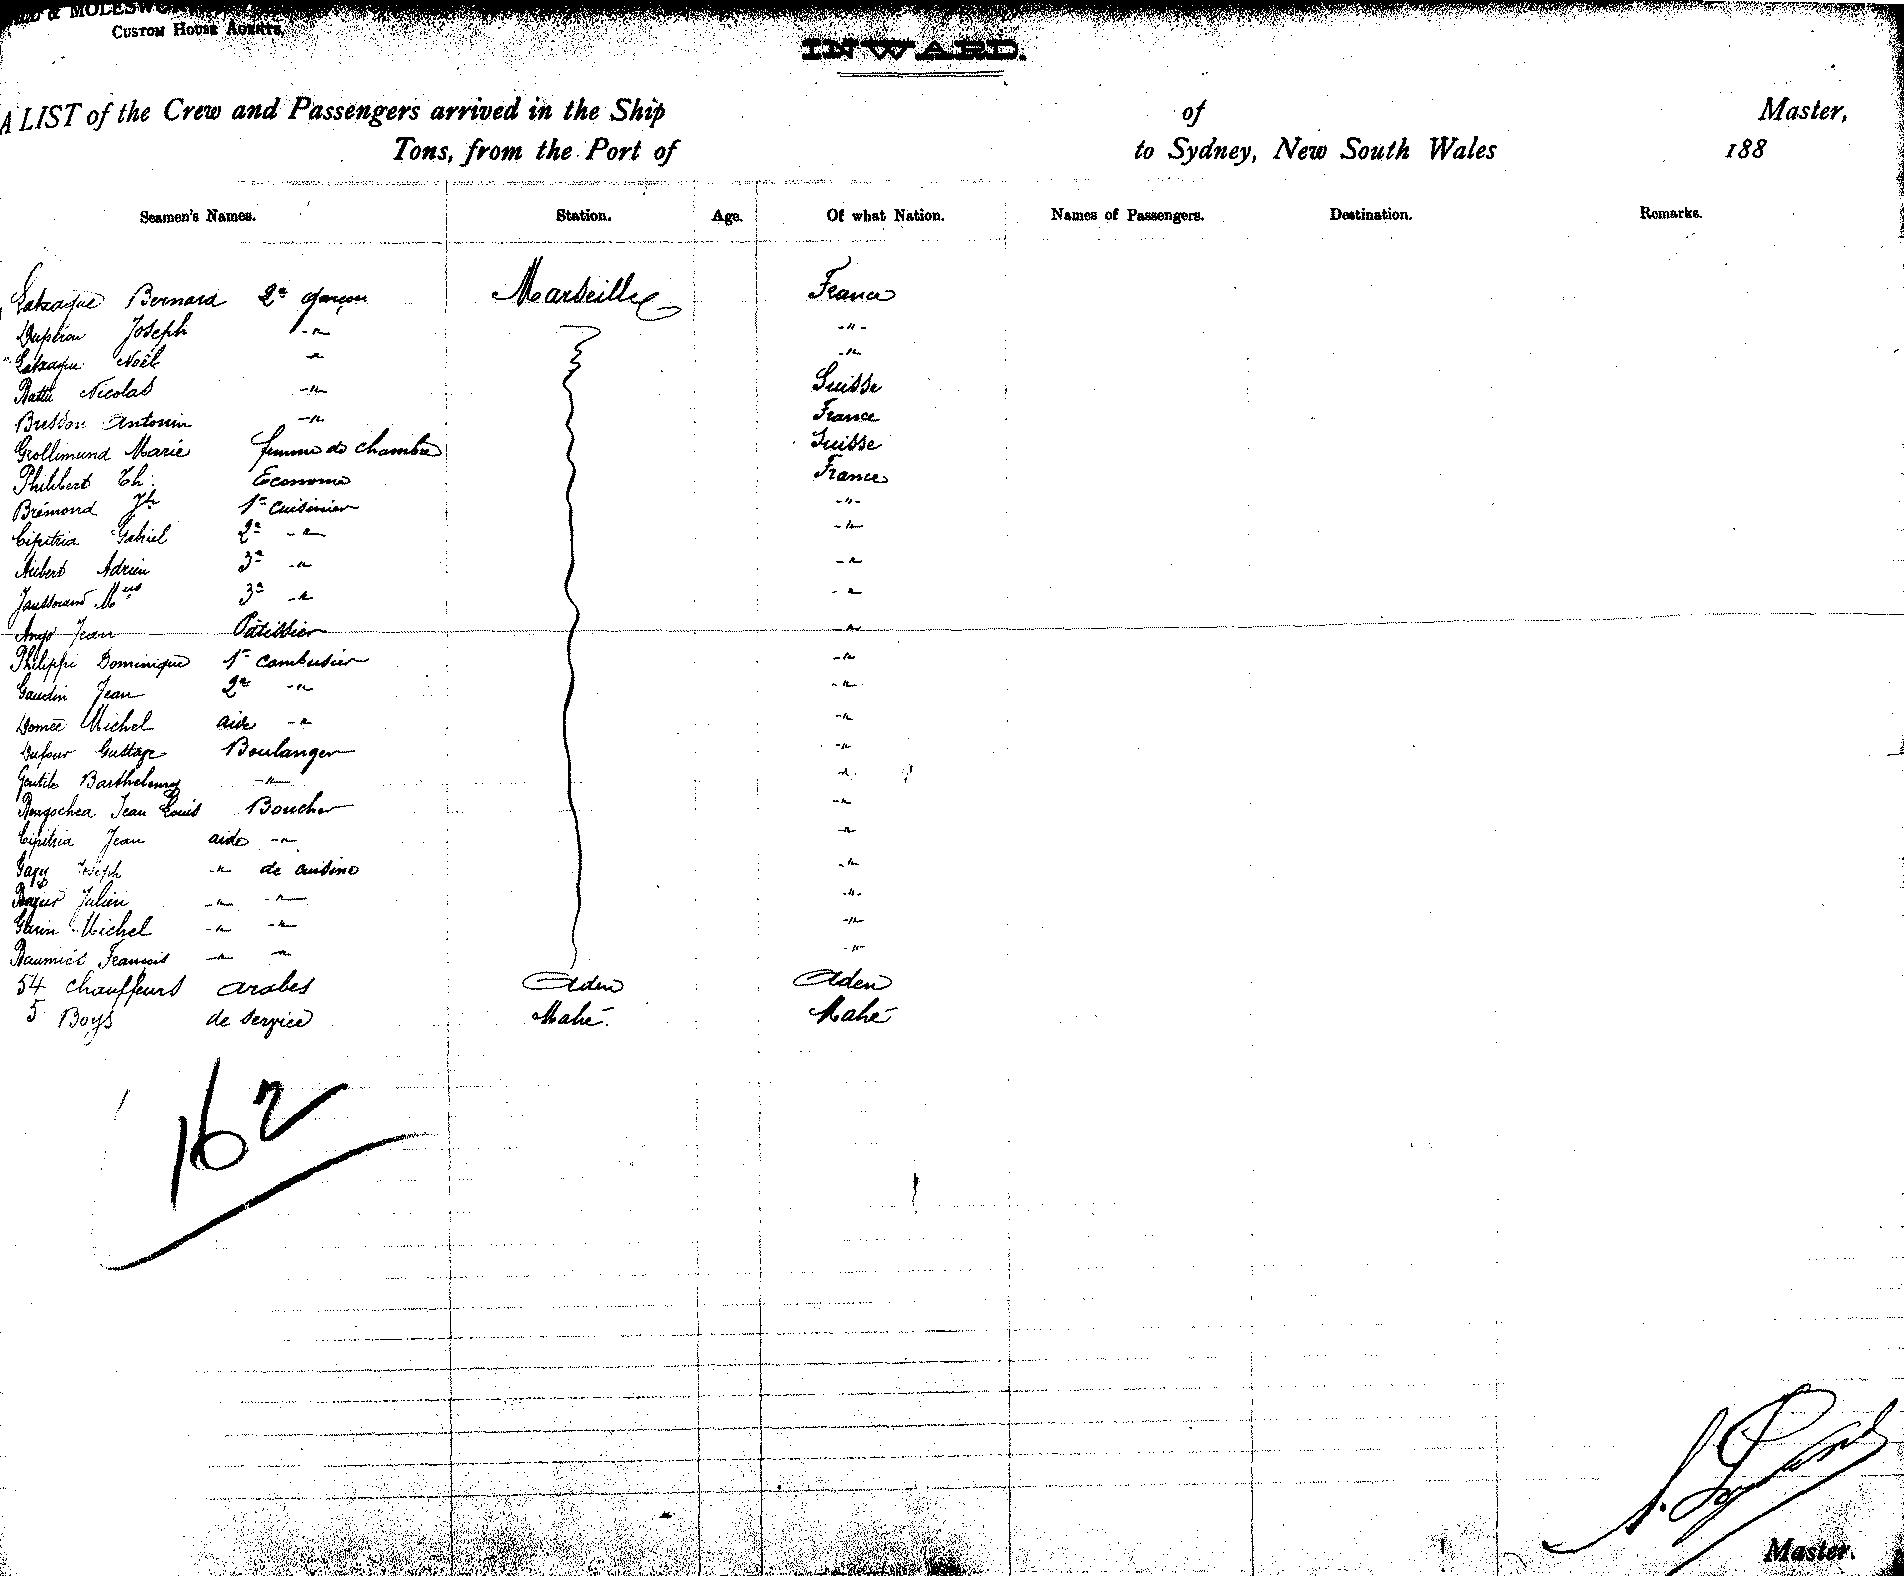 & MOLESWO
CUSTOM HOUSE AGENTS,
INWARD.
A LIST of the Crew and Passengers arrived in the Ship of Master,
Tons, from the Port of to Sydney, New South Wales 188
Seamen's Names. Station. Age. Of what Nation. Names of Passengers. Destination. Remarks.
Bernard 2e garçon Marseille France
Joseph -"- -"-
Noël -"- -"-
Nicolas -"- Suisse
Busson Antonin -"- France
Grollimund Marie femme de chambre Suisse
Philibert Th. Econome France
Brémond Jh 1er cuisinier -"-
Cipitria Gabriel 2e -"- -"-
Aubert Adrien 3e -"- -"-
Jaussaud Mius 3e -"- -"-
Ango Jean Patissier -"-
Philippi Dominique 1er cambusier -"-
Gaudin Jean 2e -"- -"-
Domec Michel aide -"- -"-
Dufour Gustave Boulanger -"-
Gentile Barthelemy -"- -"-
Jean Louis Boucher -"-
Cipitria Jean aide -"- -"-
Joseph -"- de cuisine -"-
Julien -"- -"- -"-
Michel -"- -"- -"-
Francois -"- -"- -"-
54 chauffeurs arabes Aden Aden
5 Boys de service Mahé Mahé
162
Master.